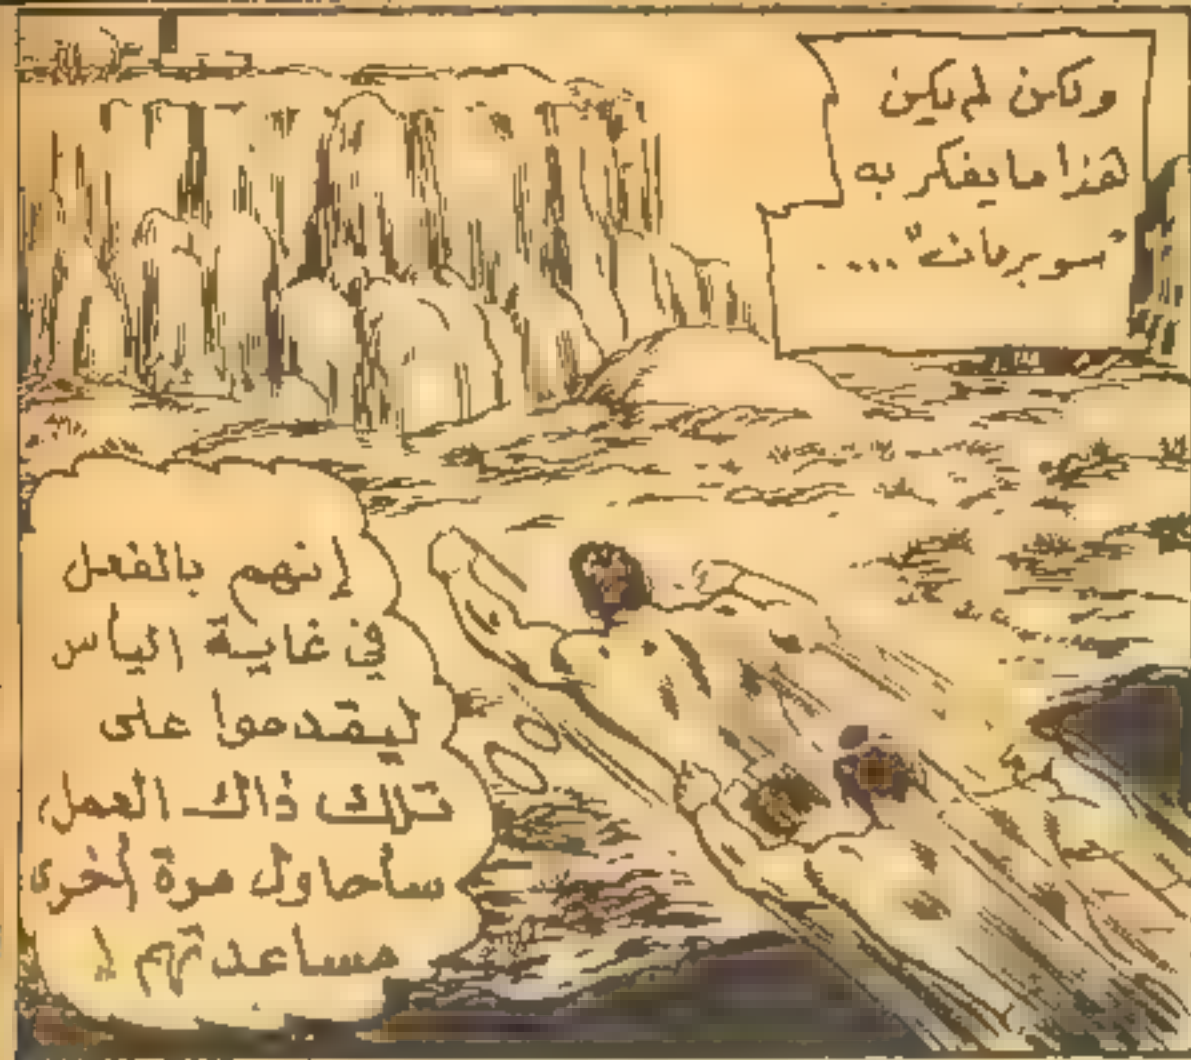 ولكن لم يكن
هذا ما يفكر به
"سوبرمان" ....
إنهم بالفعل
في غاية اليأس
ليقدموا على
تلك ذاك العمل
سأحاول مرة أخرى
مساعدتهم !